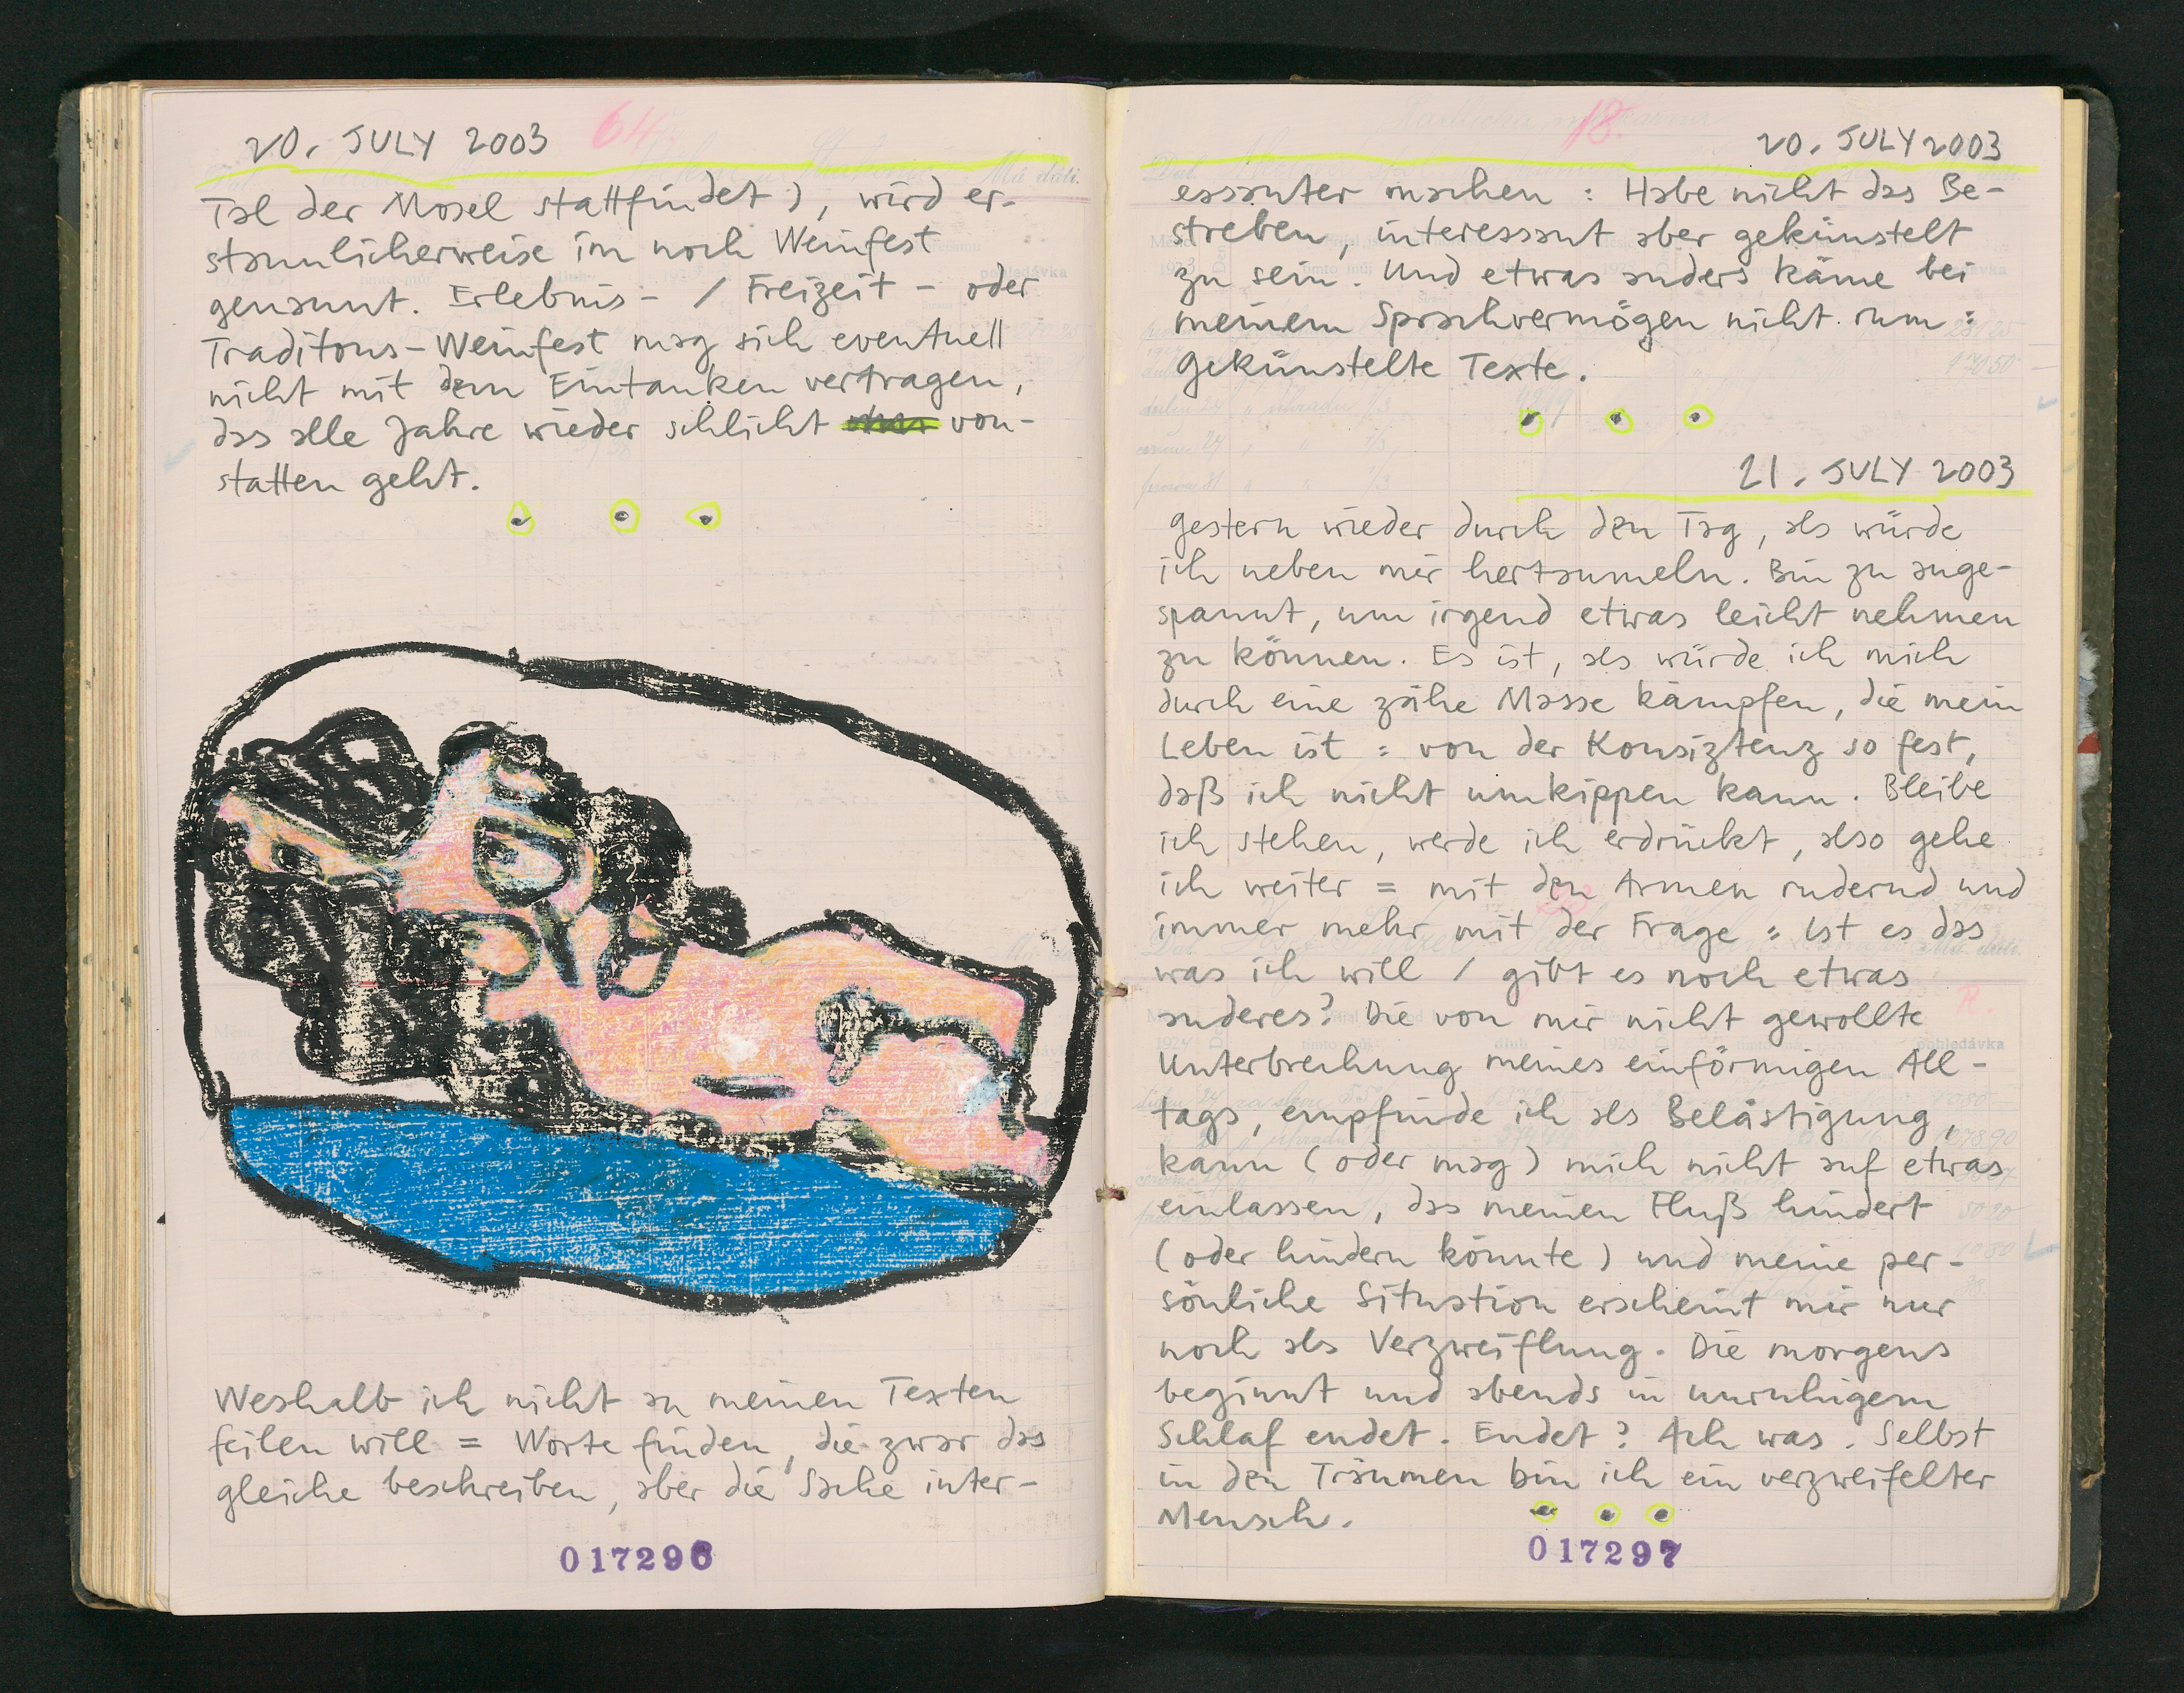 20. JULY 2003
64.
Tal der Mosel stattfindet), wird er-
staunlicherweise im noch Weinfest
genannt. Erlebnis- / Freizeit- oder
Traditons-Weinfest mag sich eventuell
nicht mit dem Eintanken vertragen,
das alle Jahre wieder schlicht von-
statten geht.
Weshalb ich nicht an meinen Texten
feilen will = Worte finden, die zwar das
gleiche beschreiben, aber die Sache inter-
017296
18.
20. JULY 2003
essanter machen : Habe nicht das Be-
streben, interessant aber gekünstelt
zu sein. Und etwas anders käme bei
meinem Sprachvermögen nicht rum :
gekünstelte Texte.
21. JULY 2003
gestern wieder durch den Tag, als würde
ich neben mir hertaumeln. Bin zu ange-
spannt, um irgend etwas leicht nehmen
zu können. Es ist, als würde ich mich
durch eine zähe Masse kämpfen, die mein
Leben ist : von der Konsiztenz so fest,
daß ich nicht umkippen kann. Bleibe
ich stehen, werde ich erdrückt, also gehe
ich weiter = mit den Armen rudernd und
immer mehr mit der Frage : Ist es das
was ich will / gibt es noch etwas
anderes? Die von mir nicht gewollte
Unterbrechung meines einförmigen All-
tags, empfinde ich als Belästigung,
kann (oder mag) mich nicht auf etwas
einlassen, das meinen Fluß hindert
(oder hindern könnte) und meine per-
sönliche Situation erscheint mir nur
noch als Verzweiflung. Die morgens
beginnt und abends in unruhigem
Schlaf endet. Endet? Ach was. Selbst
in den Träumen bin ich ein verzweifelter
Mensch.
017297